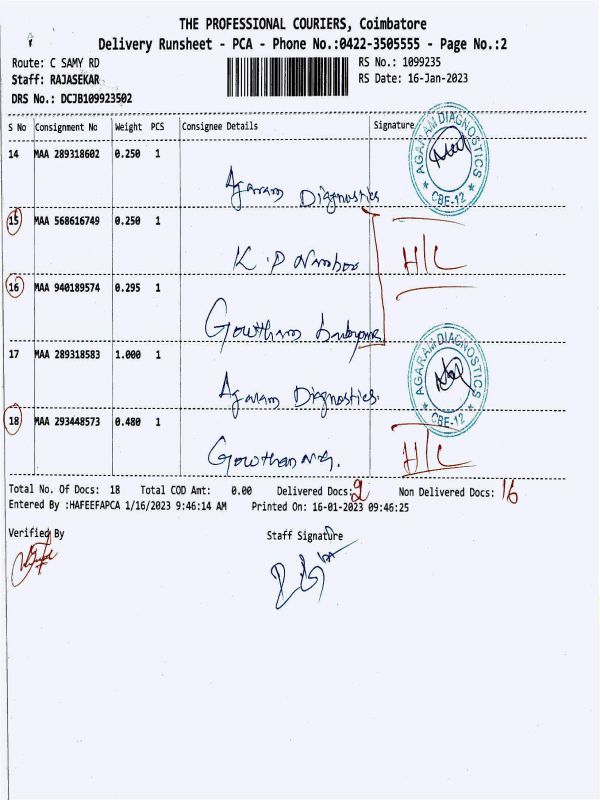 THE PROFESSIONAL COURIERS, Coimbatore
Delivery Runsheet - PCA - Phone No.:0422-3505555 - Page No.:2
Route: C SAMY RD RS No.: 1099235
Staff: RAJASEKAR RS Date: 16-Jan-2023
DRS No.: DCJB109923502
S No Consignment No Weight PCS Consignee Details Signature
AGARAM DIAGNOSTICS
★ CBE-12 ★
14 MAA 289318602 0.250 1
Agaram Diagnostics
15 MAA 568616749 0.250 1
K.P H/L
16 MAA 940189574 0.295 1
Gowtham
17 MAA 289318583 1.000 1
AGARAM DIAGNOSTICS
★ CBE-12 ★
Agaram Diagnostics.
18 MAA 293448573 0.480 1
H/L
Total No. Of Docs: 18 Total COD Amt: 0.00 Delivered Docs: 2 Non Delivered Docs: 16
Entered By :HAFEEFAPCA 1/16/2023 9:46:14 AM Printed On: 16-01-2023 09:46:25
Verified By Staff Signature